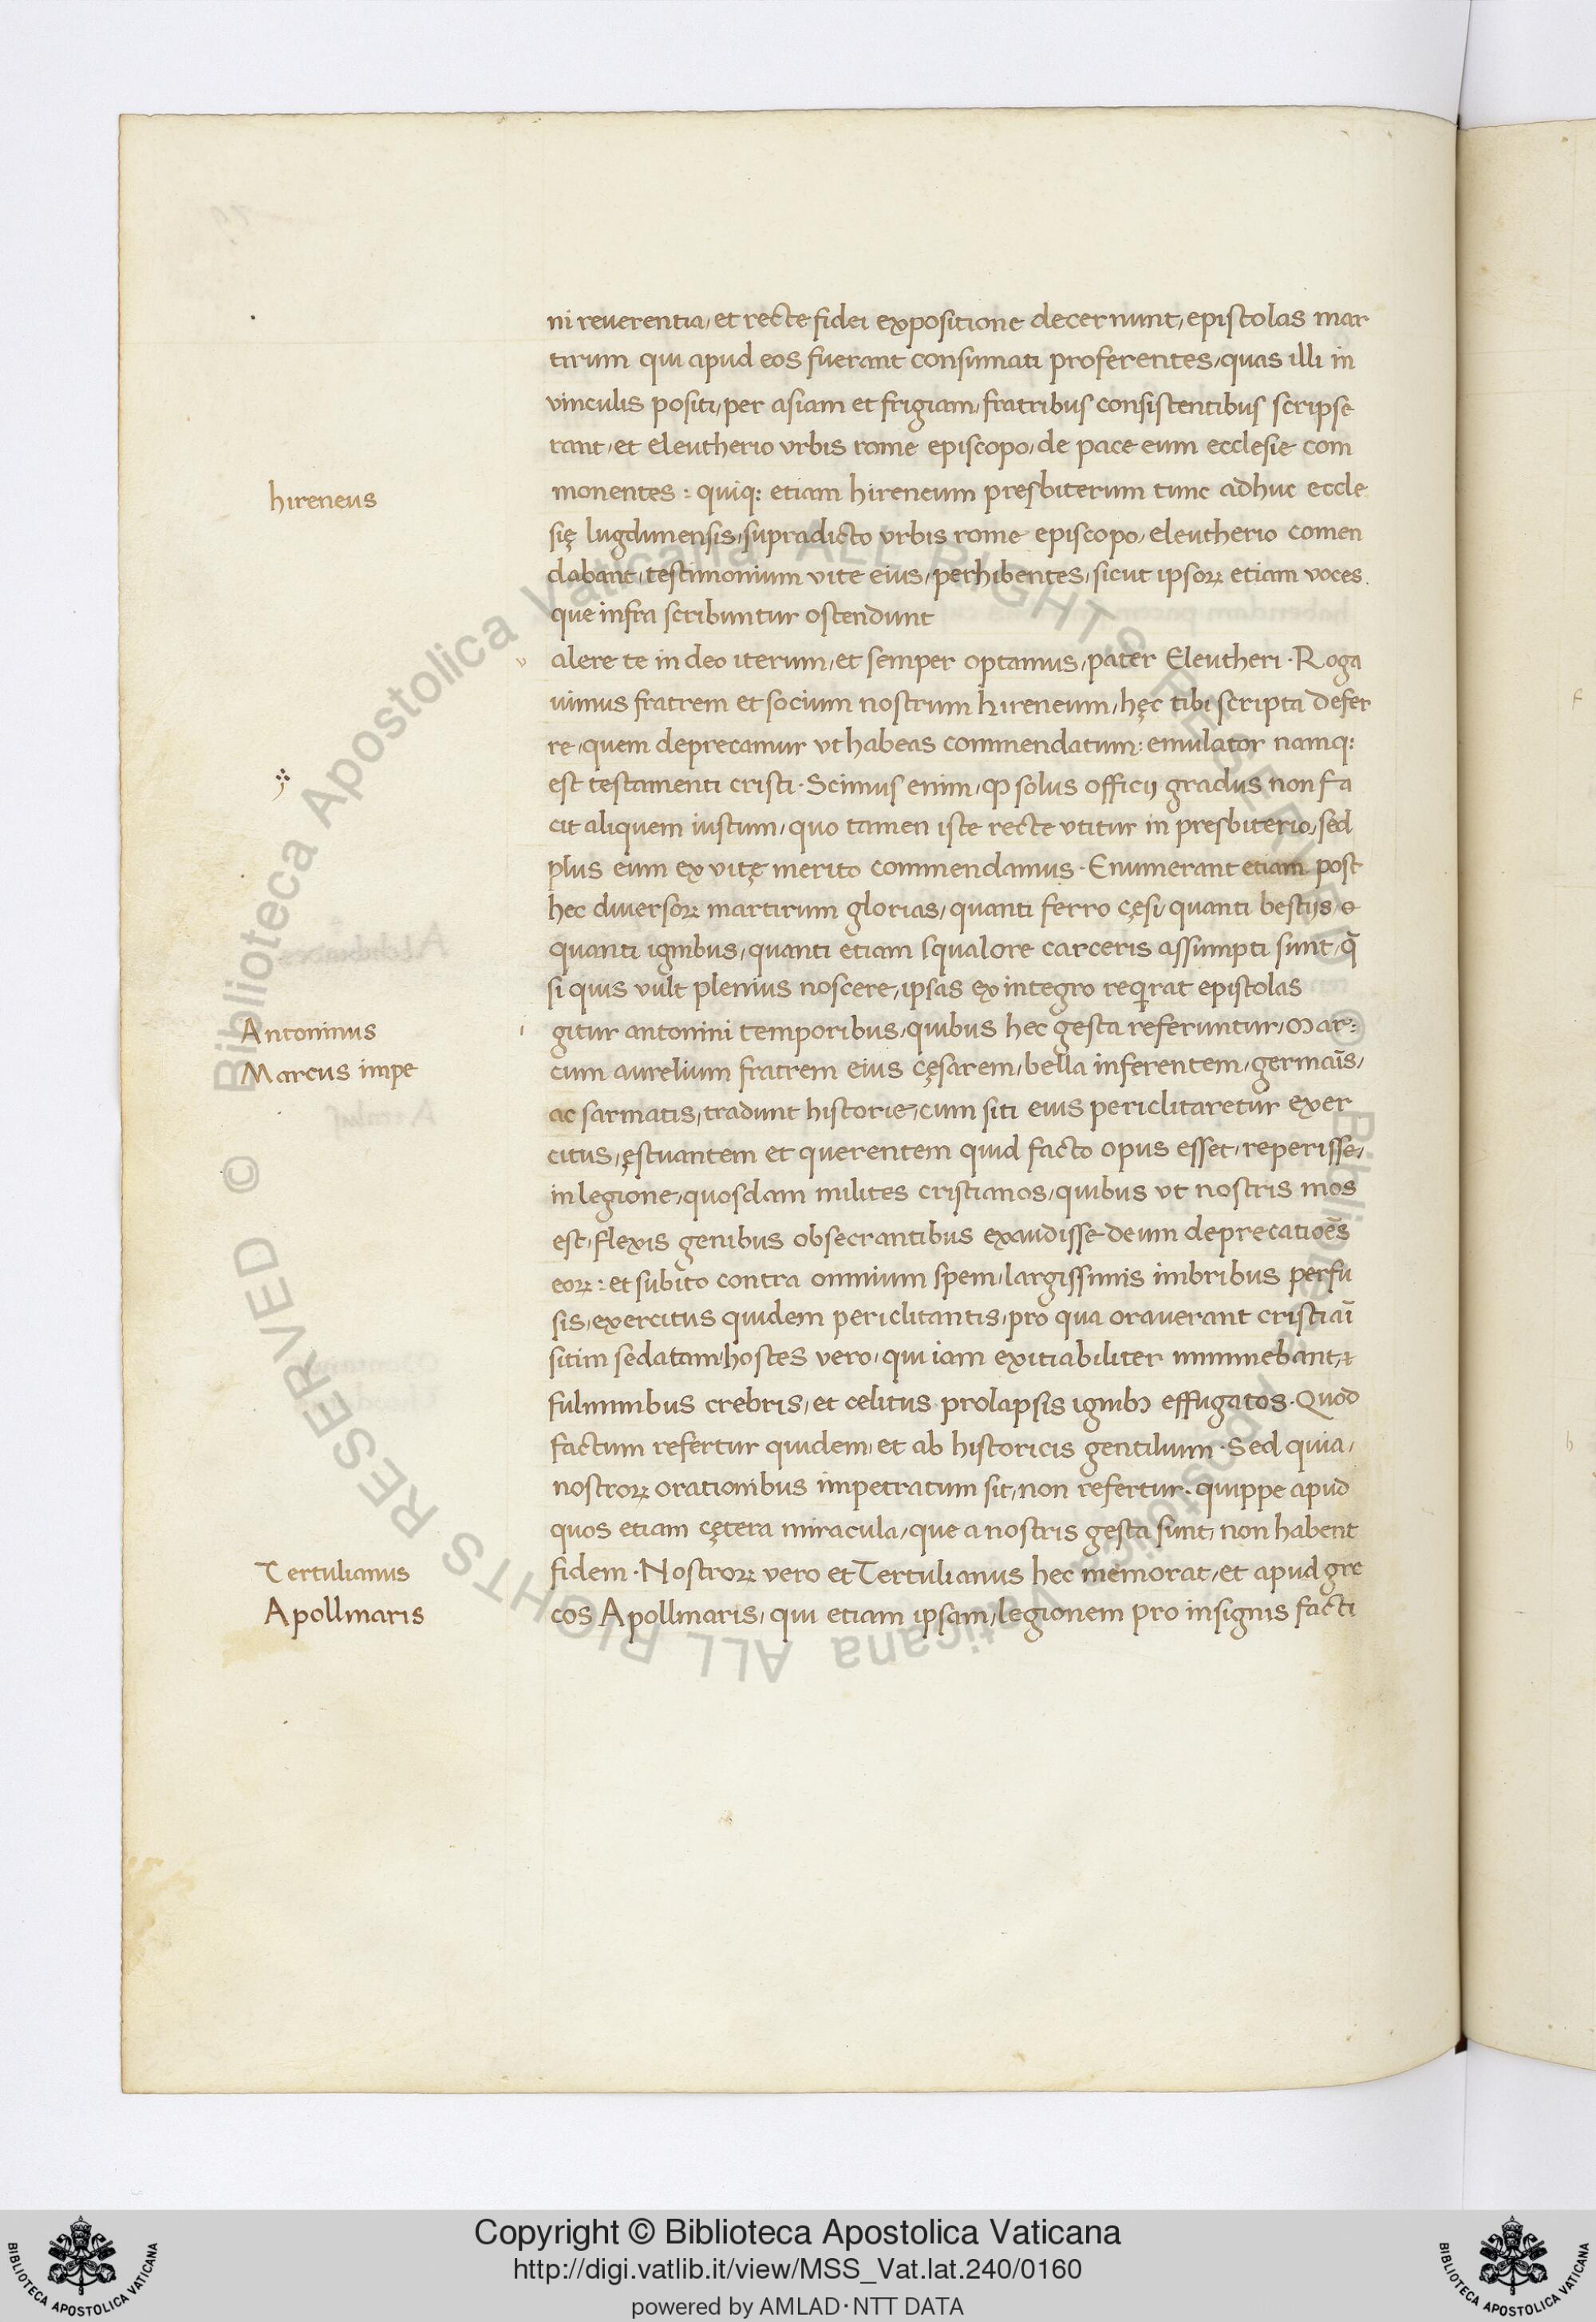 ni reuerentia, et recte fidei expositione decernunt, epistolas mar
tirum qui apud eos fuerant consumati proferentes, quas illi in
vinculis positi, per asiam et frigiam, fratribus consistentibus scripse
rant, et eleutherio vrbis rome episcopo, de pace eum ecclesie com
hireneus
monentes : quiq; etiam hireneum presbiterum tunc adhuc eccle
się lugdunensis, supradicto vrbis rome episcopo, eleutherio comen
dabant, testimonium vite eius, perhibentes, sicut ipsoꝝ etiam voces.
que infra scribuntur ostendunt
v alere te in deo iterum, et semper optamus, pater Eleutheri · Roga
uimus fratrem et socium nostrum hireneum, hęc tibi scripta defer
re, quem deprecamur vt habeas commendatum: emulator namq;
est testamenti cristi · Scimus enim, ꝙ solus officij gradus non fa
cit aliquem iustum, quo tamen iste recte vtitur in presbiterio, sed
plus eum ex vitę merito commendamus · Enumerant etiam post
hec diuersoꝝ martirum glorias, quanti ferro cęsi, quanti bestijs &
quanti ignibus, quanti etiam squalore carceris assumpti sunt, q̄
si quis vult plenius noscere, ipsas ex integro reqͥrat epistolas
Antoninus
i gitur antonini temporibus, quibus hec gesta referuntur, Mar:
Marcus impe
cum aurelium fratrem eius cęsarem, bella inferentem, germaīs,
ac sarmatis, tradunt historie, cum siti eius periclitaretur exer
citus, ęstuantem et querentem quid facto opus esset, reperisse,
in legione, quosdam milites cristianos, quibus vt nostris mos
est, flexis genibus obsecrantibus exaudisse deum deprecatioēs
eoꝝ : et subito contra omnium spem, largissimis imbribus perfu
sis, exercitus quidem periclitantis, pro qua orauerant cristiaī
sitim sedatam, hostes vero, qui iam exitiabiliter imminebant, ⁊
fulminibus crebris, et celitus prolapsis ignibꝫ effugatos · Quod
factum refertur quidem, et ab historicis gentilium · Sed quia,
nostroꝝ orationibus impetratum sit, non refertur · quippe apud
quos etiam cętera miracula, que a nostris gesta sunt, non habent
Tertulianus
fidem · Nostroꝝ vero et Tertulianus hec memorat, et apud gre
Apollinaris
cos Apollinaris, qui etiam ipsam, legionem pro insignis facti
Copyright © Biblioteca Apostolica Vaticana
http://digi.vatlib.it/view/MSS_Vat.lat.240/0160
powered by AMLAD·NTT DATA
BIBLIOTECA APOSTOLICA VATICANA
BIBLIOTECA APOSTOLICA VATICANA
© Biblioteca Apostolica Vaticana ALL RIGHTS RESERVED
© Biblioteca Apostolica Vaticana ALL RIGHTS RESERVED